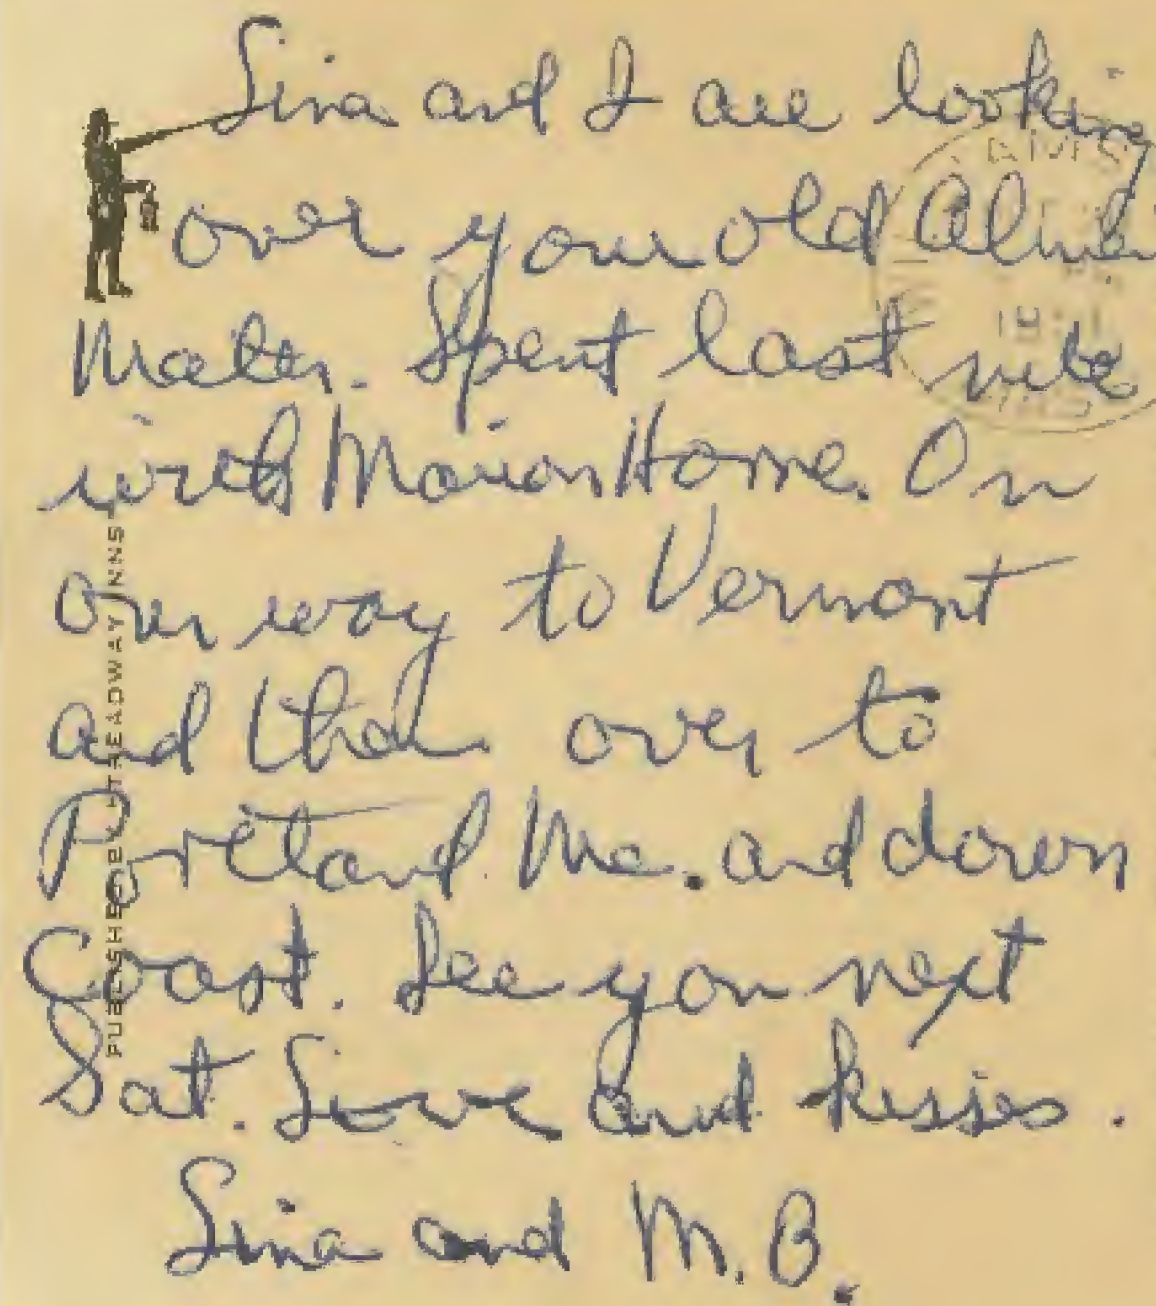 Lina and I are looking
over your old Alma
Mater. Spent last nite
with Marion Horne. On
our way to Vermont
and then over to
Portland Me. and down
Coast. See you next
Sat. Love and kisses.
Lina and M.B.
PUBLISHED BY TREADWAY INNS